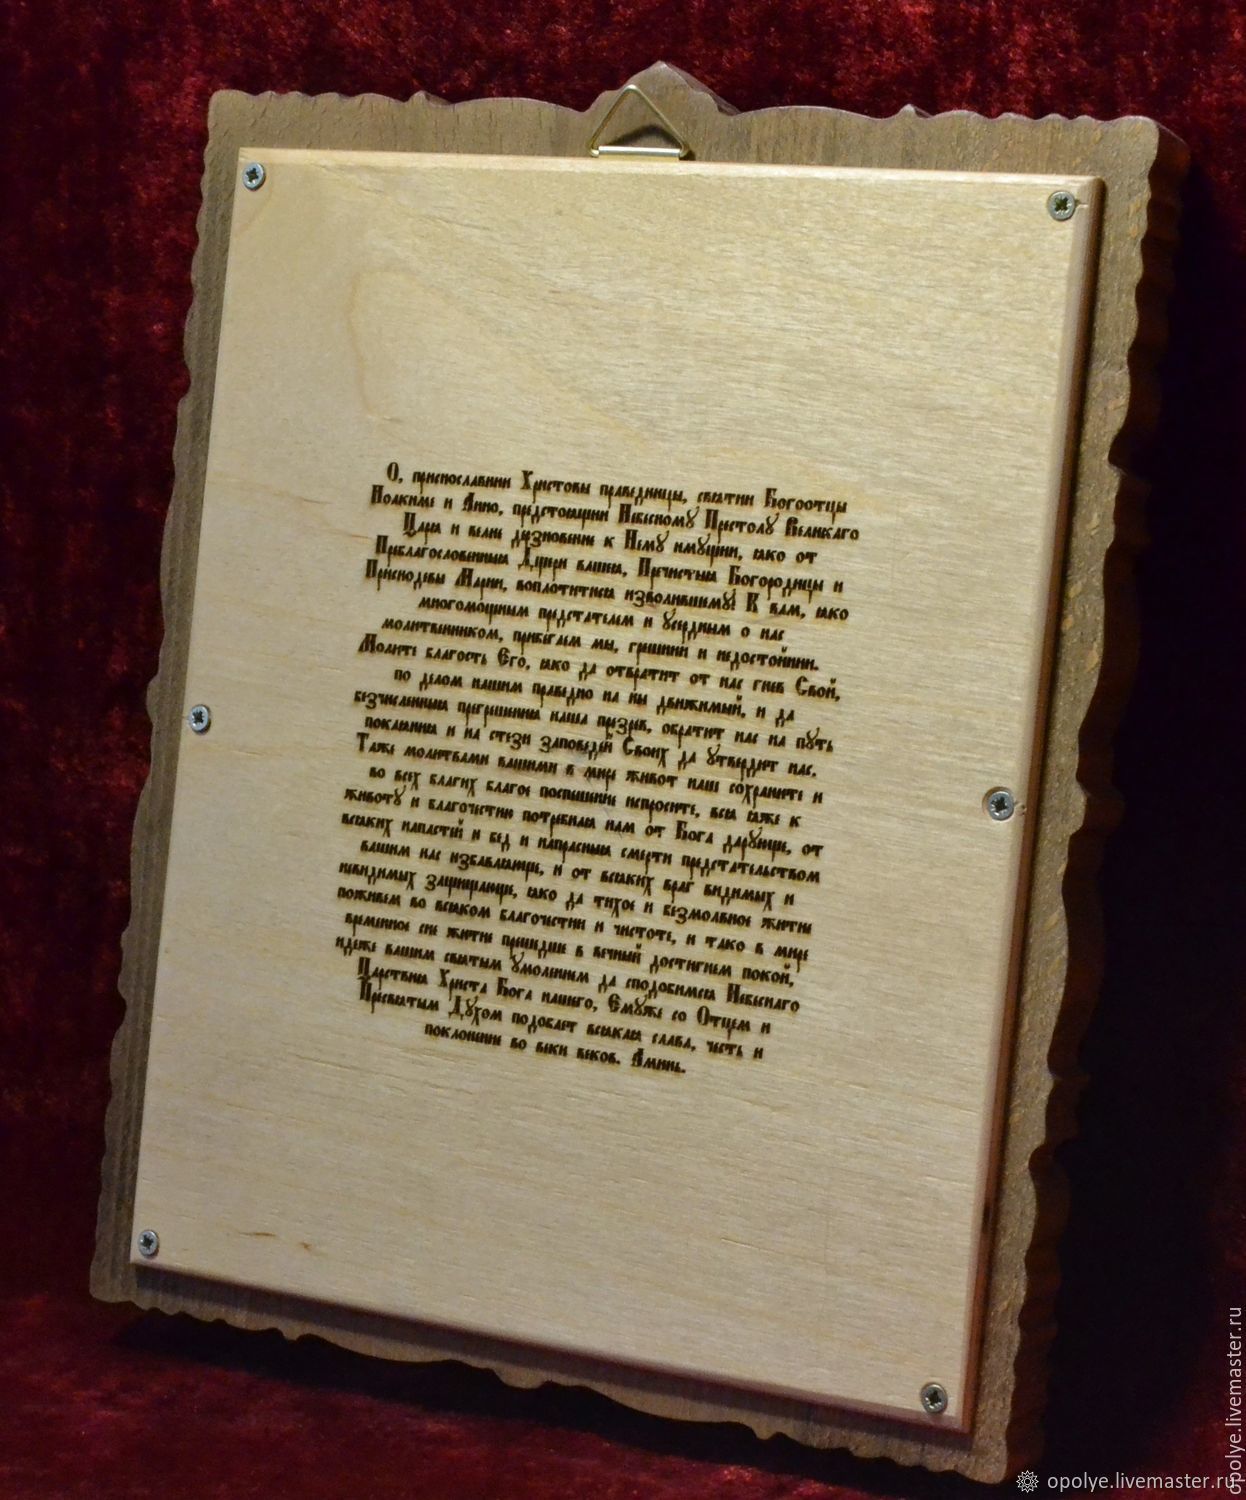 О, приснославнии Христовы праведницы, святии Богоотцы
Иоакиме и Анно, предстоящии Небесному Престолу Великаго
Царя и велие дерзновение к Нему имущии, яко от
Преблагословенныя Дщери вашея, Пречистыя Богородицы и
Приснодевы Марии, воплотитися изволившему! К вам, яко
многомощным предстателем и усердным о нас
молитвенником, прибегаем мы, грешнии и недостойнии.
Молите благость Его, яко да отвратит от нас гнев Свой,
по делом нашим праведно на ны движимый, и да
безчисленныя прегрешения наша презрев, обратит нас на путь
покаяния и на стези заповедей Своих да утвердит нас.
Таже молитвами вашими в мире живот наш сохраните и
во всех благих благое поспешение испросите, вся яже к
животу и благочестию потребная нам от Бога дарующе, от
всяких напастей и бед и напрасныя смерти предстательством
вашим нас избавляюще, и от всяких враг видимых и
невидимых защищающе, яко да тихое и безмолвное житие
поживем во всяком благочестии и чистоте, и тако в мире
временное сие житие прешедше в вечный достигнем покой,
идеже вашим святым умолением да сподобимся Небеснаго
Царствия Христа Бога нашего, Емуже со Отцем и
Пресвятым Духом подобает всякая слава, честь и
поклонение во веки веков. Аминь.
opolye.livemaster.ru
opolye.livemaster.ru